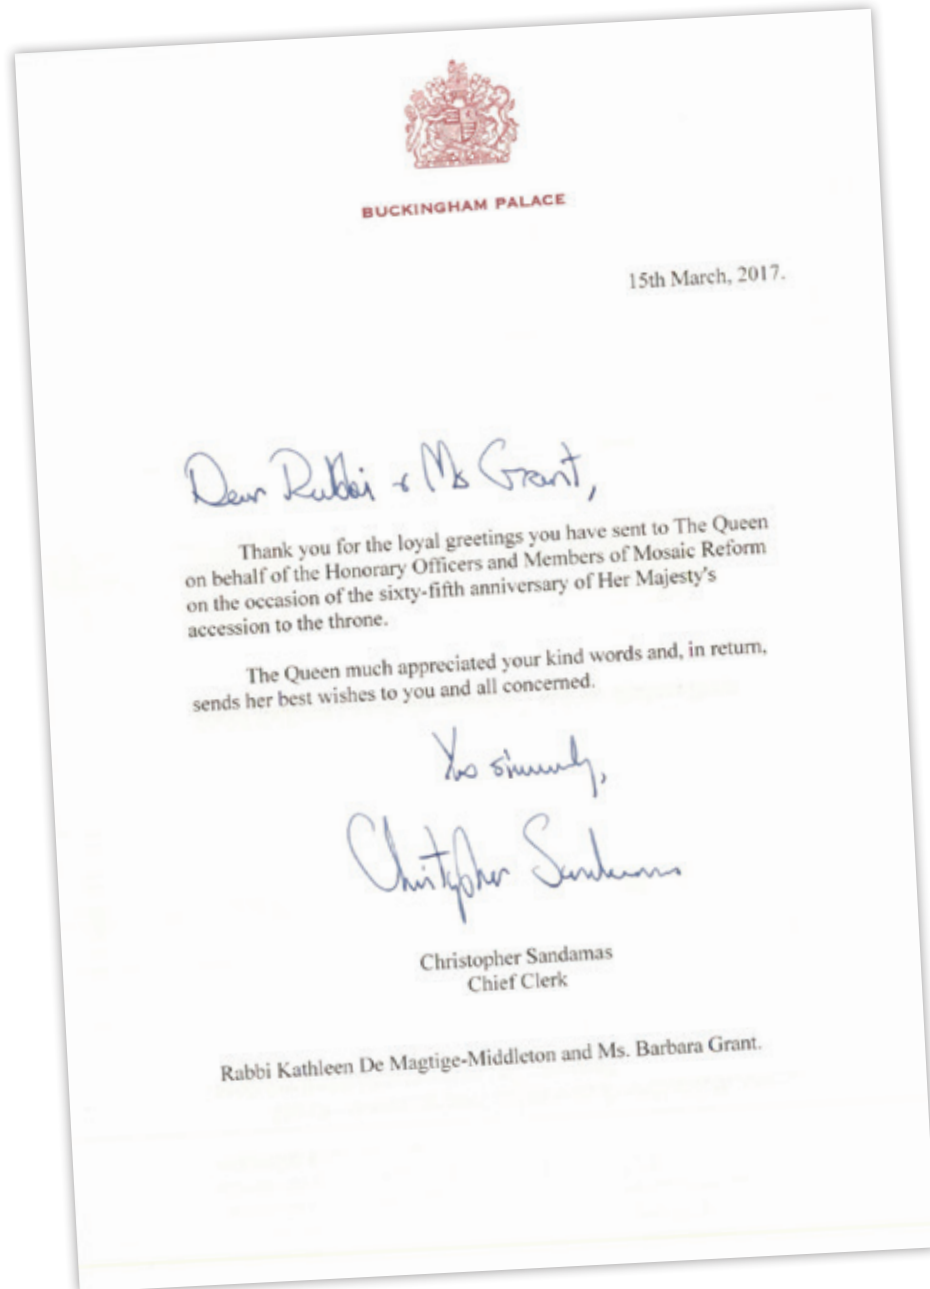 BUCKINGHAM PALACE
15th March, 2017.
Dear Rabbi & Ms Grant,
Thank you for the loyal greetings you have sent to The Queen
on behalf of the Honorary Officers and Members of Mosaic Reform
on the occasion of the sixty-fifth anniversary of Her Majesty's
accession to the throne.
The Queen much appreciated your kind words and, in return,
sends her best wishes to you and all concerned.
Yrs sincerely,
Christopher Sandamas
Christopher Sandamas
Chief Clerk
Rabbi Kathleen De Magtige-Middleton and Ms. Barbara Grant.